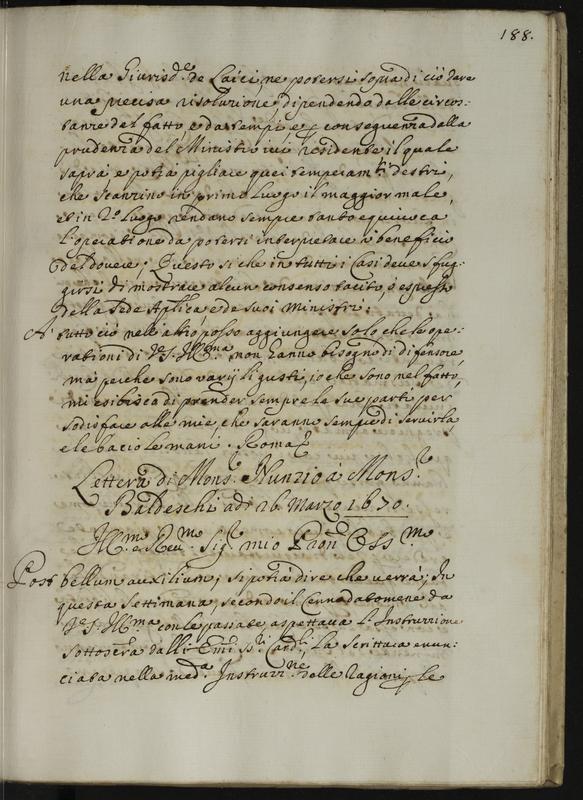 188.
nella Giurisd.e de Laici, ne potersi sopra di ciò dare
una precisa risoluzione dipendendo dalle circos:
tanze del fatto e da tempi e p conseguenza dalla
prudenza del Ministro ivi residente il quale
saprà e potrà pigliare quei temperam.ti destri,
che scanzino in primo luogo il maggior male,
et in 2.o luogo rendano sempre tanto equivoca
l'operatione da potersi interpretare à beneficio
del dovere; Questo si che in tutti i Casi deve sfug:
girsi di mostrare alcun consenso tacito, ò espresso
della Sede Aplica e de suoi Ministri:
A' tutto ciò nell'altro posso aggiungere solo che le ope:
rationi di V.S. Ill.ma non hanno bisogno di difensore,
mà perche sono varij li gusti, io che sono nel fatto,
mi esibisco di prender sempre le sue parti per
sodisfare alle mie, che saranno sempre di servirla,
e le bacio le mani. Roma
Lettera di Mons.r Nunzio à Mons.r
Baldeschi adì 26. Marzo 1670.
Ill.mo e Rev.mo Sig.r mio Pron Oss.mo
Post bellum auxilium; si potrà dire che verrà; In
questa settimana, secondo il Cenno datomene da
V.S. Ill.ma con le passate aspettava l'Instruzzione
sottoscra dalli Emi SS.ri Card.li, La Scrittura enun:
ciata nella med.a Instruzz.ne delle Ragioni p le